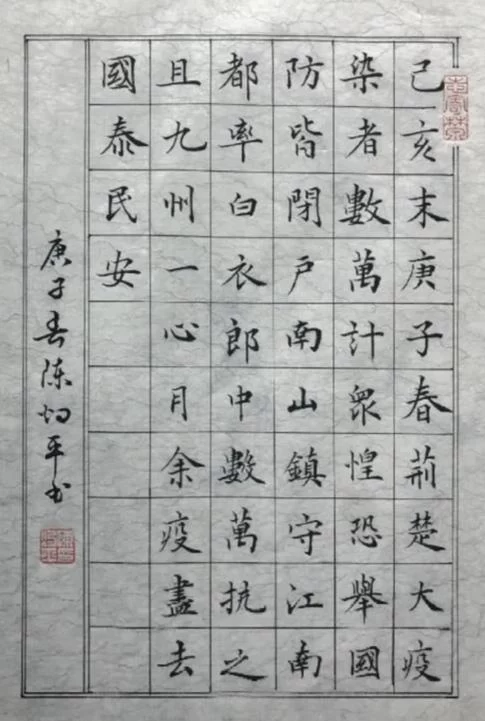 己亥末庚子春荊楚大疫
染者數萬計眾惶恐舉國
防皆閉户南山鎮守江南
都率白衣郎中數萬抗之
且九州一心月余疫盡去
國泰民安
庚子春陳
平书